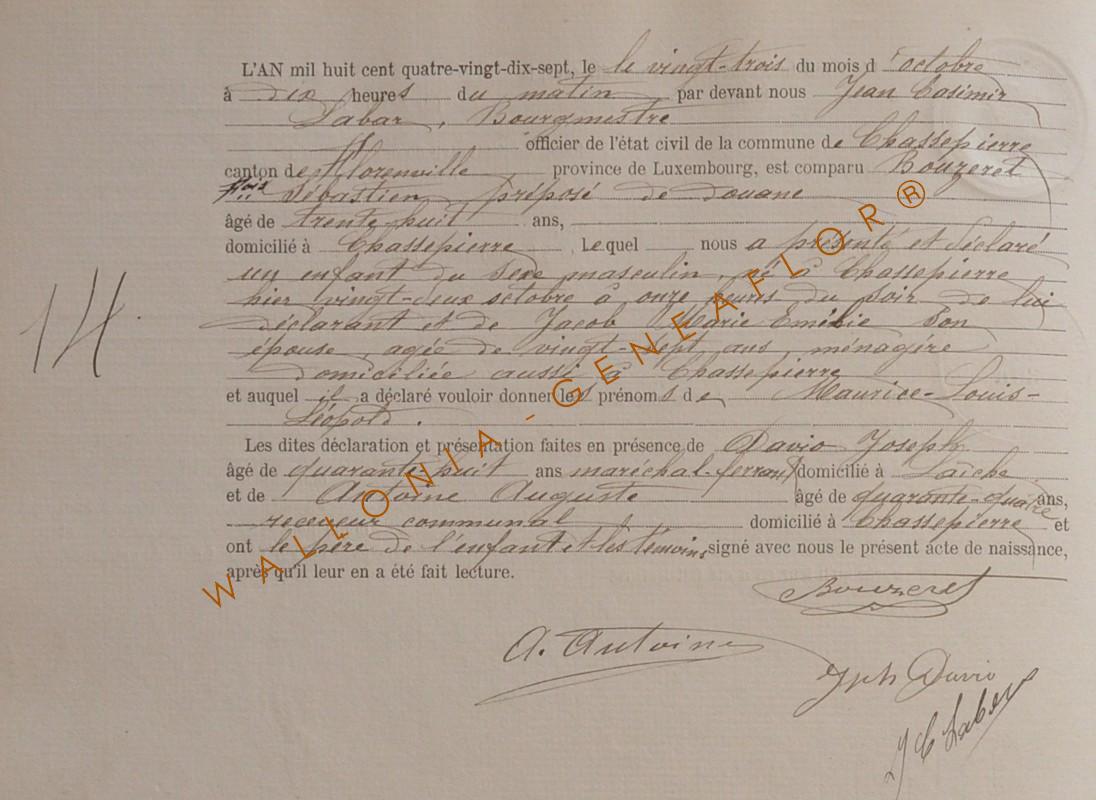 L'AN mil huit cent quatre-vingt-dix-sept, le le vingt-trois du mois d'octobre
à dix heures du matin par devant nous Jean Casimir
Labar, Bourgmestre
officier de l'état civil de la commune de Chassepierre
canton de Florenville province de Luxembourg, est comparu Bouzeret
Sébastien, préposé de douane
âgé de trente-huit ans,
domicilié à Chassepierre Lequel nous a présenté et déclaré
un enfant du sexe masculin, né à Chassepierre
hier vingt-deux octobre à onze heures du soir de lui
déclarant et de Jacob Marie Emélie son
épouse agée de vingt-sept ans ménagère
domiciliée aussi à Chassepierre
14.
et auquel il a déclaré vouloir donner les prénoms de Maurice-Louis-
Léopold.
Les dites déclaration et présentation faites en présence de David Joseph
âgé de quarante-huit ans maréchal-ferrant domicilié à Laiche
et de Antoine Auguste âgé de quarante-quatre ans,
receveur communal domicilié à Chassepierre et
ont le père de l'enfant et les témoins signé avec nous le présent acte de naissance,
après qu'il leur en a été fait lecture.
WALLONIA-GENEAFLOR®
Bouzeret
A. Antoine
Jph David
J C Labar